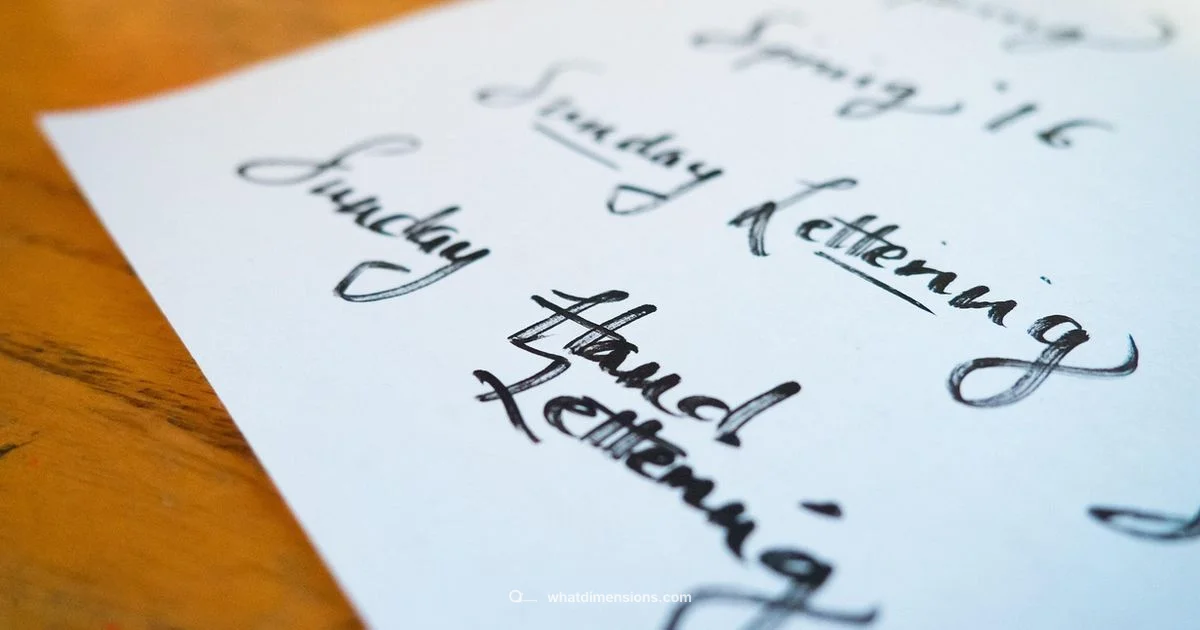 Spring '16
Sunday Lettering
Sunday
Hand
Lettering
whatdimensions.com